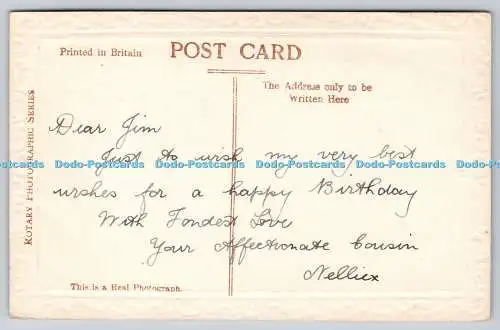 Printed in Britain
POST CARD
The Address only to be
Written Here
ROTARY PHOTOGRAPHIC SERIES
Dear Jim
Just to wish my very best
Dodo-Postcards Dodo-Postcards Dodo-Postcards Dodo-Postcards Dodo-Postcards
wshes for a happy Birthday
With Fondest Love
Your Affectionate Cousin
Nelliex
This is a Real Photograph.